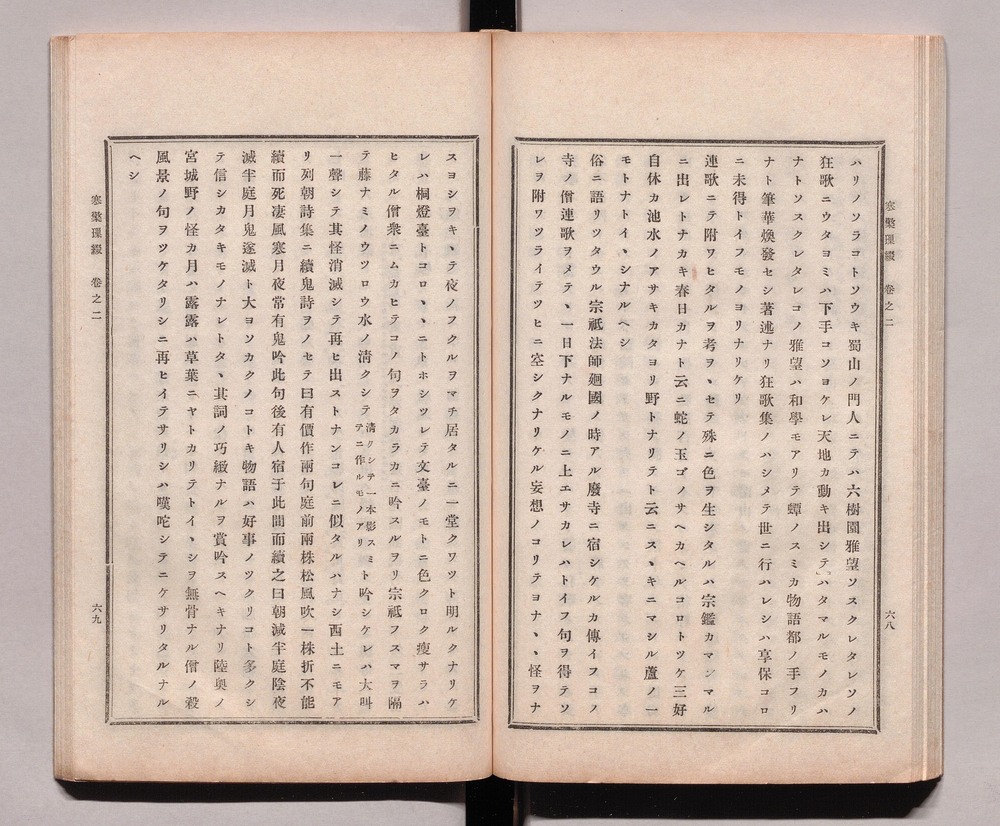 寒檠璅綴　卷之二
六八
ハリノソラコトソウキ蜀山ノ門人ニテハ六樹園雅望ソスクレタレソノ
狂歌ニウタヨミハ下手コソヨケレ天地カ動キ出シテハタマルモノカハ
ナトソスクレタレコノ雅望ハ和學モアリテ蟫ノスミカ物語都ノ手フリ
ナト筆華煥發セシ著述ナリ狂歌集ノハシメテ世ニ行ハレシハ享保コロ
ニ未得トイフモノヨリナリケリ
連歌ニテ附ワヒタルヲ考ヲヽセテ殊ニ色ヲ生シタルハ宗鑑カマンマル
ニ出レトナカキ春日カナト云ニ蛇ノ玉ゴノサヘカヘルコロトツケ三好
自休カ池水ノアサキカタヨリ野トナリテト云ニスヽキニマシル蘆ノ一
モトナトイヽシナルヘシ
俗ニ語リツタウル宗祗法師廻國ノ時アル廢寺ニ宿シケルカ傳イフコノ
寺ノ僧連歌ヲメテヽ一日下ナルモノニ上エサカレハトイフ句ヲ得テソ
レヲ附ワツライテツヒニ空シクナリケル妄想ノコリテヨナヽヽ怪ヲナ
スヨシヲキヽテ夜ノフクルヲマチ居タルニ一堂クワツト明ルクナリケ
レハ桐燈臺トコロヽヽニトホシツレテ文臺ノモトニ色クロク瘦サラハ
ヒタル僧衆ニムカヒテコノ句ヲタカラカニ吟スルヲリ宗祗フスマヲ隔
テ藤ナミノウツロウ水ノ淸クシテ淸クシテ一本影スミテニ作ルモノアリト吟シケレハ大叫
一聲シテ其怪消滅シテ再ヒ出ストナンコレニ似タルハナシ西土ニモア
リ列朝詩集ニ續鬼詩ヲノセテ曰有價作兩句庭前兩株松風吹一株折不能
續而死凄風寒月夜常有鬼吟此句後有人宿于此間而續之曰朝滅半庭陰夜
滅半庭月鬼遂滅ト大ヨソカクノコトキ物語ハ好事ノツクリコト多クシ
テ信シカタキモノナレトタヽ其詞ノ巧緻ナルヲ賞吟スヘキナリ陸奧ノ
宮城野ノ怪カ月ハ露露ハ草葉ニヤトカリテトイヽシヲ無骨ナル僧ノ殺
風景ノ句ヲツケタリシニ再ヒイテサリシハ嘆咜シテニケサリタルナル
ヘシ
寒檠璅綴　卷之二
六九